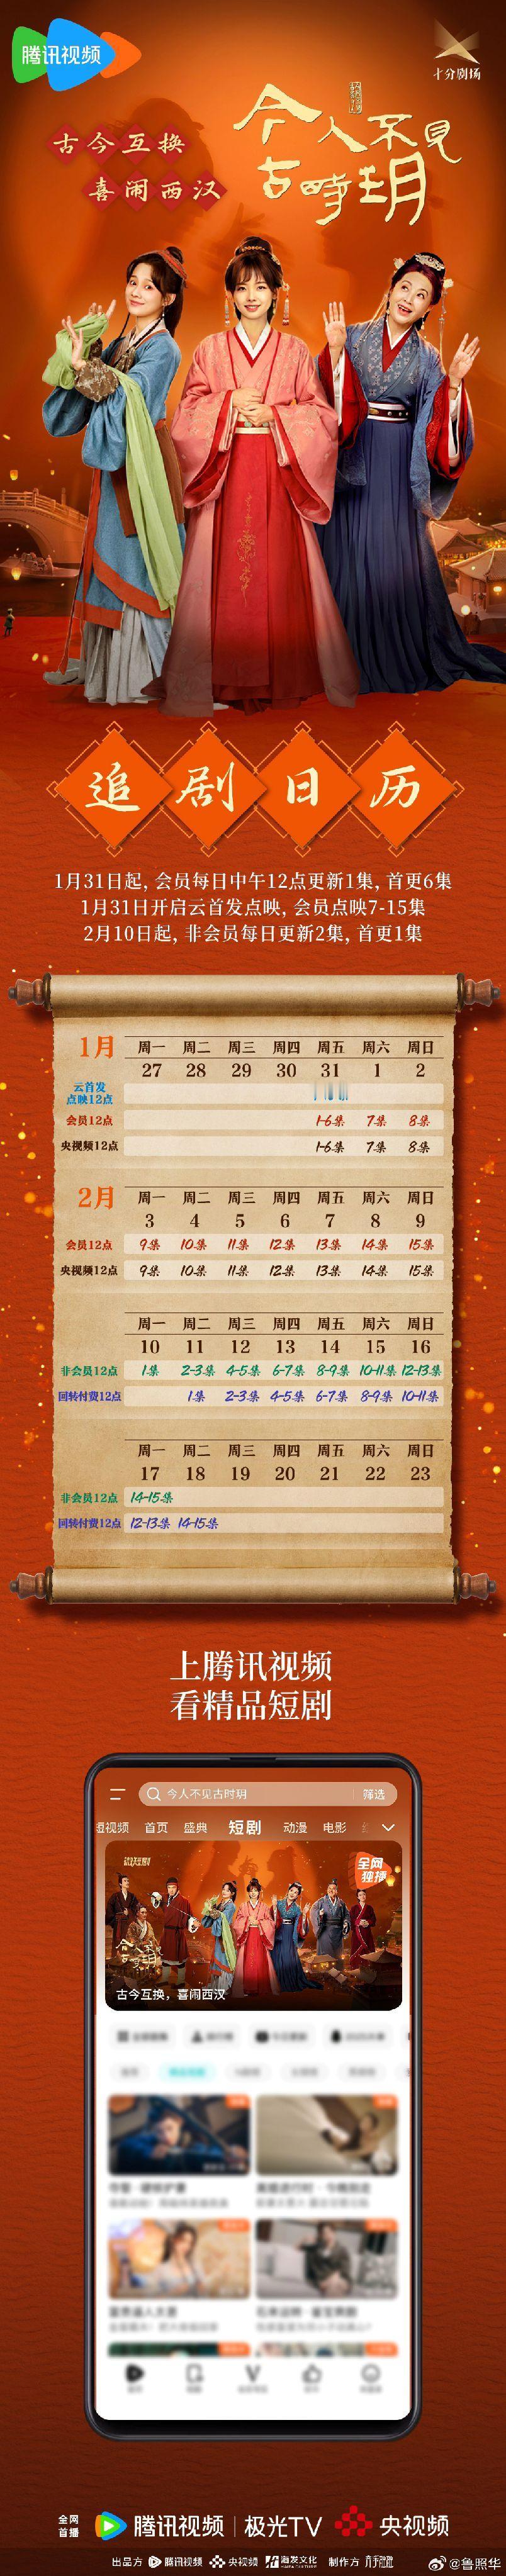 腾讯视频
十分剧场
今人不见
古時玥
古今互换
喜闹西汉
追剧日历
1月31日起, 会员每日中午12点更新1集, 首更6集
1月31日开启云首发点映, 会员点映7-15集
2月10日起, 非会员每日更新2集, 首更1集
1月 周一 周二 周三 周四 周五 周六 周日
27 28 29 30 31 1 2
云首发
点映12点
会员12点 1-6集 7集 8集
央视频12点 1-6集 7集 8集
2月 周一 周二 周三 周四 周五 周六 周日
3 4 5 6 7 8 9
会员12点 9集 10集 11集 12集 13集 14集 15集
央视频12点 9集 10集 11集 12集 13集 14集 15集
周一 周二 周三 周四 周五 周六 周日
10 11 12 13 14 15 16
非会员12点 1集 2-3集 4-5集 6-7集 8-9集 10-11集 12-13集
回转付费12点 1集 2-3集 4-5集 6-7集 8-9集 10-11集
周一 周二 周三 周四 周五 周六 周日
17 18 19 20 21 22 23
非会员12点 14-15集
回转付费12点 12-13集 14-15集
上腾讯视频
看精品短剧
今人不见古时玥 筛选
短视频 首页 盛典 短剧 动漫 电影
微短剧
全网
独播
今人不见
古時玥
古今互换，喜闹西汉
全网
首播
腾讯视频 极光TV 央视频
出品方 腾讯视频 央视频 海发文化 制作方
@鲁照华